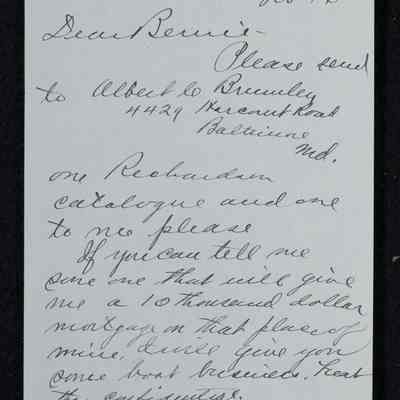 Dear Bernie -
Please send
to Albert C Brumley
4429 Harcourt Road
Baltimore
Md.
one Richardson
catalogue and one
to me please
If you can tell me
some one that will give
me a 10 thousand dollar
mortgage on that place of
mine, I will give you
some boat business. Treat
this confidential.